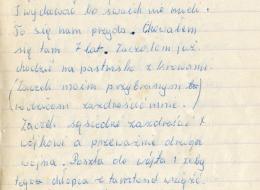 i wydawać bo swoich nie mieli.
To się nam przyda. Chowałem
się tam 7 lat. Zaczołem już
chodzić na pastwisko z krowami.
(Zaczeli moim przybranym
rodzicom zazdrościć mnie.
Zaczeli sąsiedzi zazdrościć
wójkowi a przeważnie druga
wojna. Poszła do wójta i żeby
tego chłopca z tamtond wziąść.